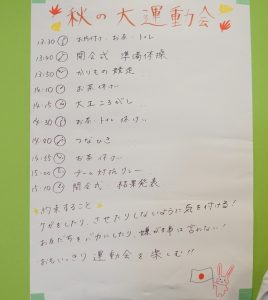 秋の大運動会
13:30 お片付け・お茶・トイレ
13:40 開会式 準備体操
13:50 かりもの競走
14:10 お茶休けい
14:15 大玉ころがし
14:30 お茶・トイレ休けい
14:40 つなひき
14:55 お茶休けい
15:00 チーム対抗リレー
15:10 閉会式 結果発表
約束すること
ケガをしたり、させたりしないように気を付ける!
お友だちをバカにしたり、嫌な事は言わない!
おもいっきり運動会を楽しむ!!